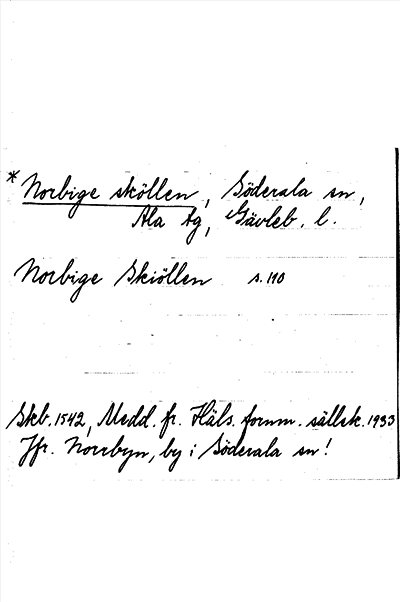 * Norbige sköllen, Söderala sn,
Ala tg, Gävleb. l.
Norbige Skiöllen s. 110
Skb. 1542, Medd. fr. Häls. fornm. sällsk. 1933
Jfr. Norrbyn, by i Söderala sn!